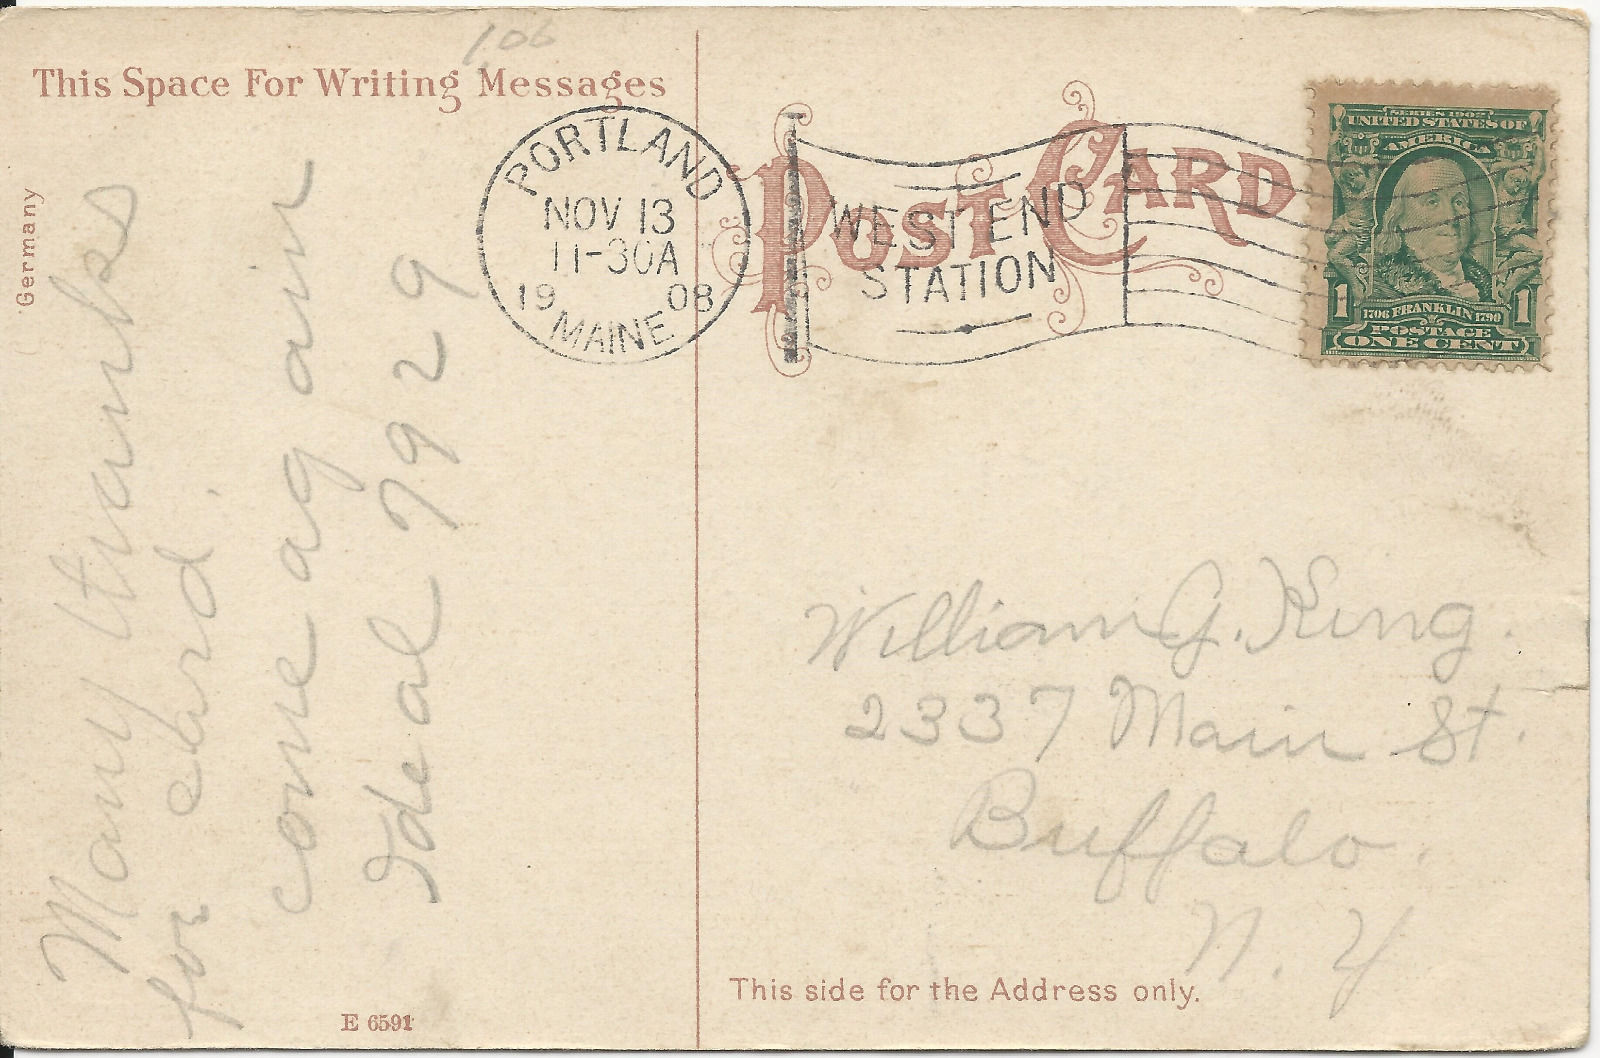 1.06
This Space For Writing Messages
Germany
Many thanks
for card.
come again
Ideal 7929
E 6591
PORTLAND
NOV 13
11-30A
19 08
MAINE
WEST END
STATION
POST CARD
SERIES 1902
UNITED STATES OF
AMERICA
1706 FRANKLIN 1790
1 POSTAGE 1
ONE CENT
William G. King.
2337 Main St.
Buffalo.
N. Y
This side for the Address only.